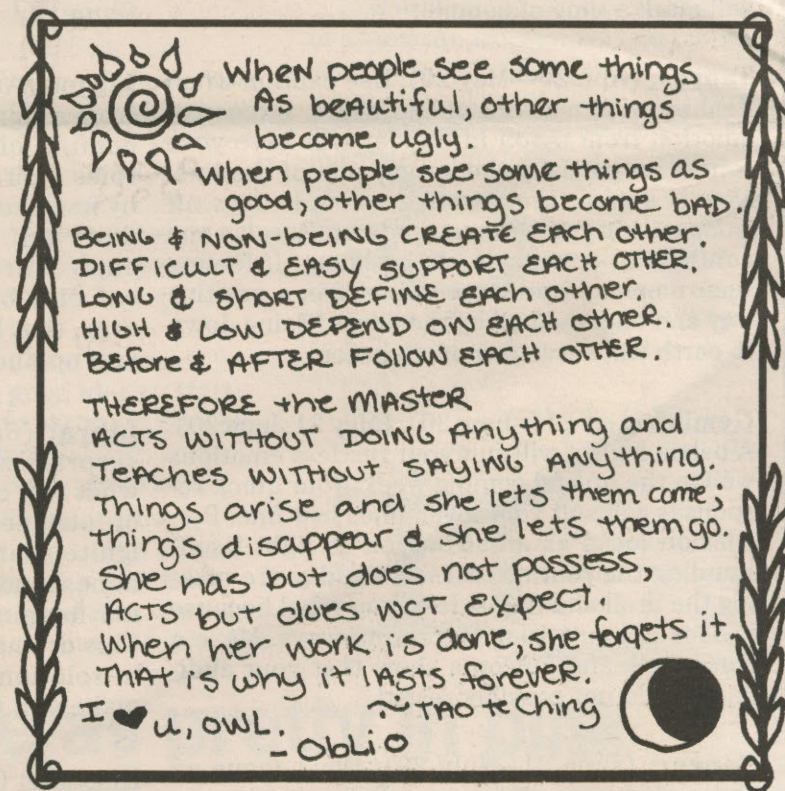 When people see some things
As beautiful, other things
become ugly.
When people see some things as
good, other things become bAD.
BEING & NON-beING CREATE EACH other.
DIFFICULT & EASY SUPPORT EACH OTHER.
LONG & SHORT DEFINE EACH other.
HIGH & LOW DEPEND ON EACH OTHER.
BEfore & AFTER FOLLOW EACH OTHER.
THEREFORE the MASTER
ACTS WITHOUT DOING Anything and
TEACHES WITHOUT SAYING ANYthing.
Things arise and she lets them come;
things disappear & she lets them go.
She has but does not possess,
ACTS but does NOT EXPECT.
When her work is done, she forgets it.
That is why it lAsts forever.
~ TAO te Ching
I ♥ u, OWL.
- ObLiO